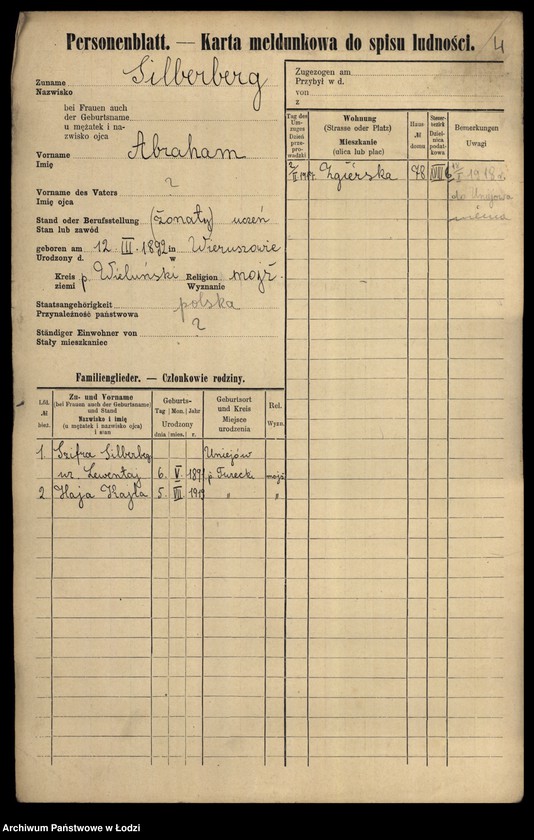 Personenblatt. — Karta meldunkowa do spisu ludności. 4
Zuname Silberberg
Nazwisko
bei Frauen auch
der Geburtsname
u mężatek i na-
zwisko ojca
Vorname Abraham
Imię
Vorname des Vaters ?
Imię ojca
Stand oder Berufsstellung (żonaty) uczeń
Stan lub zawód
geboren am 12. III. 1892 in Wieruszowie
Urodzony d. w
Kreis p. Wieluński Religion mojż.
ziemi Wyznanie
Staatsangehörigkeit polska
Przynależność państwowa
Ständiger Einwohner von ?
Stały mieszkaniec
Zugezogen am
Przybył w d.
von
z
Tag des Um-zuges
Dzień przepro-wadzki
Wohnung
(Strasse oder Platz)
Mieszkanie
(ulica lub plac)
Haus-
№
domu
Steuer-bezirk
Dziel-nica podat-kowa
Bemerkungen
Uwagi
Zgierska 78 VIII 6 1918 r.
do Uniejowa
Familienglieder. — Członkowie rodziny.
Lfd.
№
bież.
Zu- und Vorname
(bei Frauen auch der Geburtsname)
und Stand
Nazwisko i imię
(u mężatek i nazwisko ojca)
i stan
Geburts-
Tag Mon. Jahr
Urodzony
dnia mies. r.
Geburtsort
und Kreis
Miejsce
urodzenia
Rel.
Wyzn.
1. Szifra Silberbg. Uniejów
ur. Lewentaj 6. V. p. Turecki mojż
2 Haja Kajla 5. VII. 1919 " "
Archiwum Państwowe w Łodzi